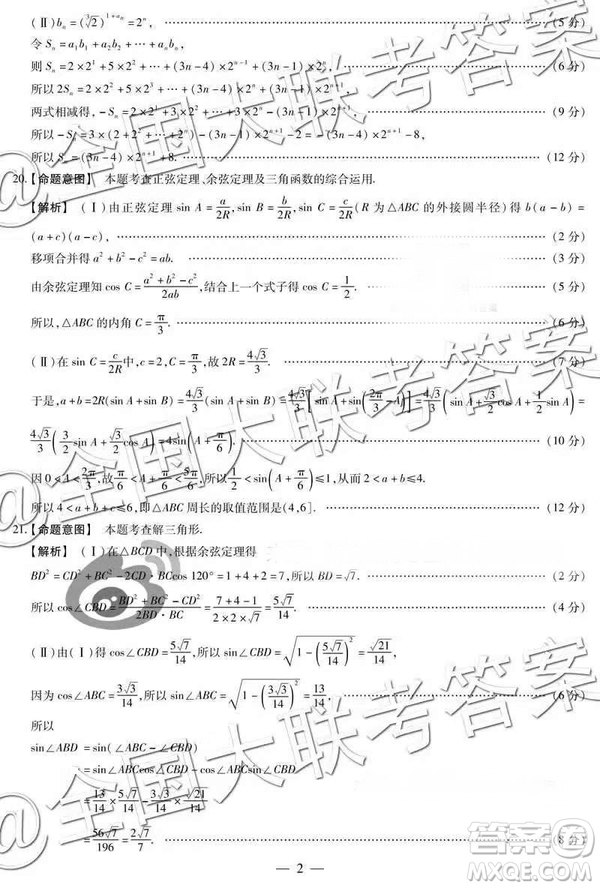 (Ⅱ) bₙ = (∛2)^(1+aₙ) = 2ⁿ, (5 分)
令 Sₙ = a₁b₁ + a₂b₂ + … + aₙbₙ,
则 Sₙ = 2×2¹ + 5×2² + … + (3n-4)×2ⁿ⁻¹ + (3n-1)×2ⁿ, (6 分)
所以 2Sₙ = 2×2² + 5×2³ + … + (3n-4)×2ⁿ + (3n-1)×2ⁿ⁺¹,
两式相减得, -Sₙ = 2×2¹ + 3×2² + … + 3×2ⁿ - (3n-1)×2ⁿ⁺¹, (9 分)
所以 -Sₙ = 3×(2 + 2² + … + 2ⁿ) - (3n-1)×2ⁿ⁺¹ - 2 = -(3n-4)×2ⁿ⁺¹ - 8,
所以 Sₙ = (3n-4)×2ⁿ⁺¹ + 8. (12 分)
20.【命题意图】 本题考查正弦定理、余弦定理及三角函数的综合运用.
【解析】 (Ⅰ)由正弦定理 sin A = a/2R, sin B = b/2R, sin C = c/2R (R 为△ABC 的外接圆半径)得 b(a-b) =
(a+c)(a-c), (2 分)
移项合并得 a² + b² - c² = ab. (3 分)
由余弦定理知 cos C = (a²+b²-c²)/2ab, 结合上一个式子得 cos C = 1/2. (5 分)
所以, △ABC 的内角 C = π/3. (6 分)
(Ⅱ)在 sin C = c/2R 中, c = 2, C = π/3, 故 2R = 4√3/3. (7 分)
于是, a+b = 2R(sin A + sin B) = 4√3/3 (sin A + sin B) = 4√3/3 [sin A + sin(2π/3 - A)] = 4√3/3 (sin A + √3/2 cos A + 1/2 sin A) =
4√3/3 (3/2 sin A + √3/2 cos A) = 4sin(A + π/6). (10 分)
因 0 < A < 2π/3, 故 π/6 < A + π/6 < 5π/6, 所以, 1/2 < sin(A + π/6) ≤ 1, 从而 2 < a+b ≤ 4.
所以 4 < a+b+c ≤ 6, 故△ABC 周长的取值范围(4,6]. (12 分)
21.【命题意图】 本题考查解三角形.
【解析】 (Ⅰ)在△BCD 中, 根据余弦定理得
BD² = CD² + BC² - 2CD·BCcos 120° = 1+4+2 = 7, 所以 BD = √7. (2 分)
所以 cos∠CBD = (BD²+BC²-CD²)/2BD·BC = (7+4-1)/(2×2×√7) = 5√7/14. (4 分)
(Ⅱ)由(Ⅰ)得 cos∠CBD = 5√7/14, 所以 sin∠CBD = √(1-(5√7/14)²) = √21/14,
因为 cos∠ABC = 3√3/14, 所以 sin∠ABC = √(1-(3√3/14)²) = 13/14, (6 分)
所以
sin∠ABD = sin(∠ABC - ∠CBD)
= sin∠ABCcos∠CBD - cos∠ABCsin∠CBD
= 13/14 × 5√7/14 - 3√3/14 × √21/14
= 56√7/196 = 2√7/7. (8 分)
— 2 —
@全国大联考答案
@全国大联考答案
@全国大联考答案
答案圈
MXQE.COM